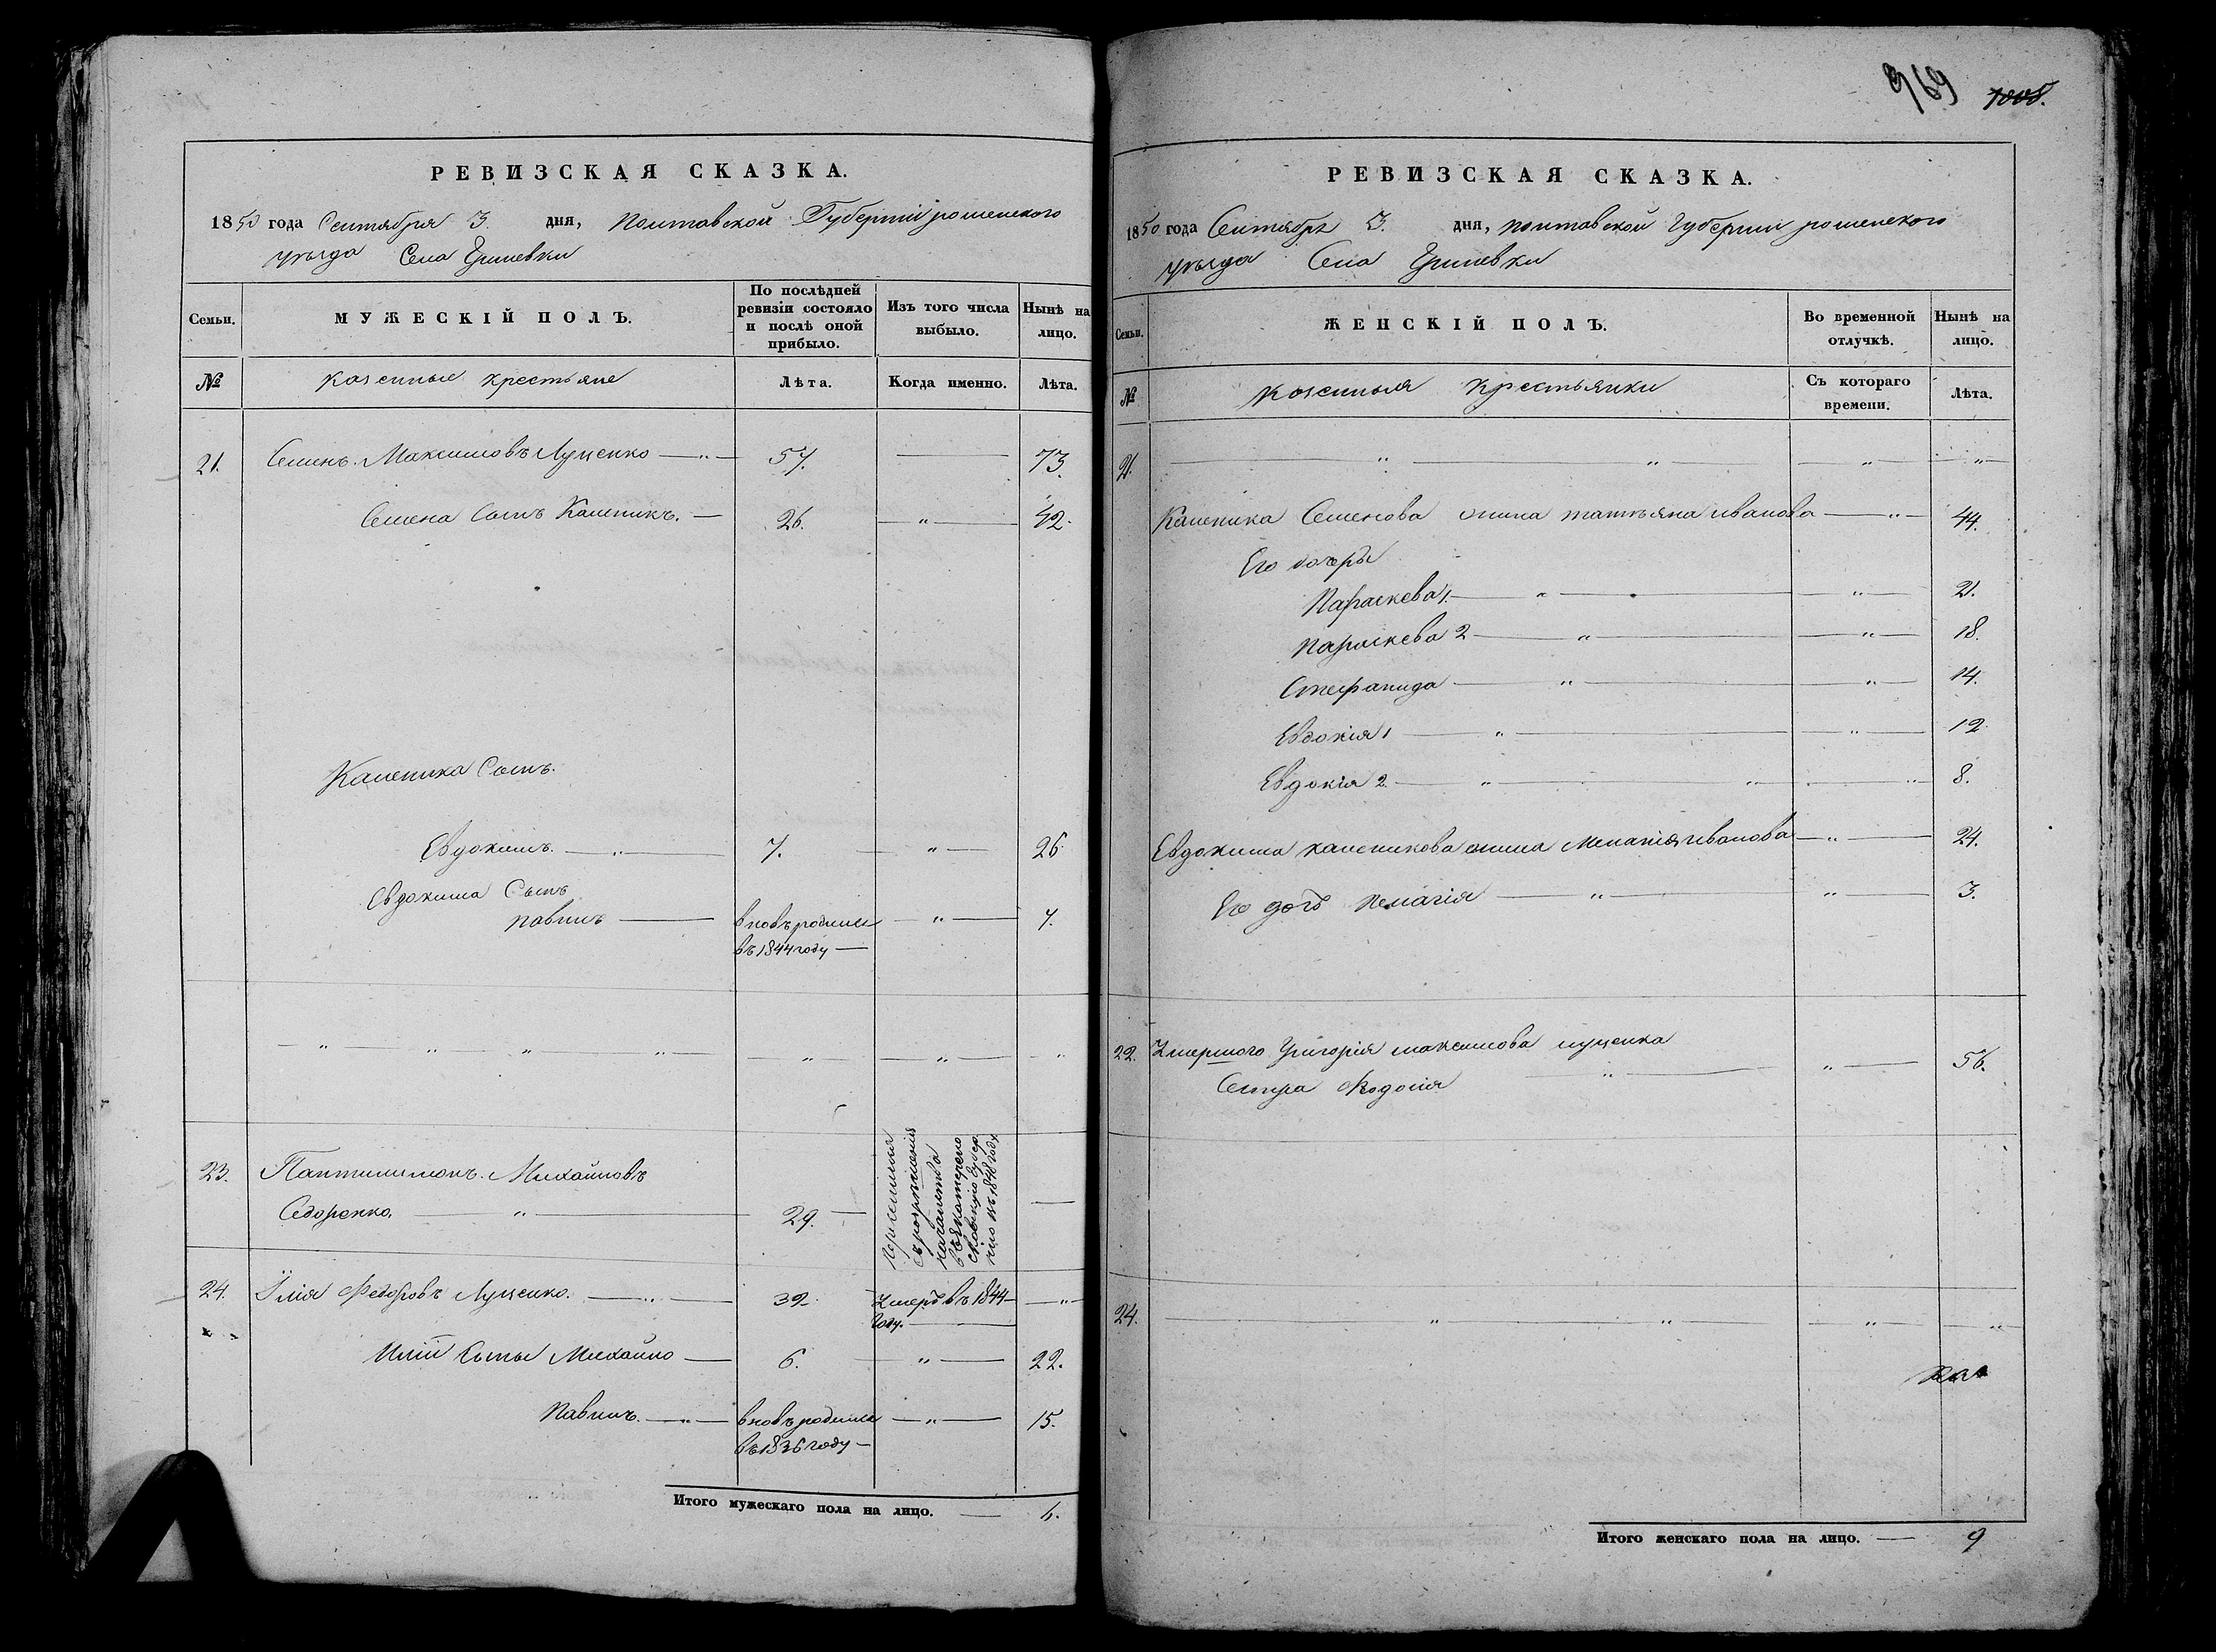 РЕВИЗСКАЯ СКАЗКА.
1850 года Сентября 3. дня, Полтавской Губернии роменского
уѣзда Села Гришевки
Семьи.
МУЖЕСКІЙ ПОЛЪ.
По послѣдней
ревизіи состояло
и послѣ оной
прибыло.
Изъ того числа
выбыло.
Нынѣ на
лицо.
№
казенные крестьяне
Лѣта.
Когда именно.
Лѣта.
21. Семенъ Максимовъ Луценко — " — 57. — 73.
Семена Сынъ Каленикъ. — 26. — " — 42.
Каленика Сынъ.
Евдокимъ. — " — 7. — " — 26
Евдокима Сынъ
павилъ — вновь родился — " — 7.
въ 1844 году —
— " " " " — " — " — "
23. Пантилимонъ Михайловъ
Седоренко. — " — 29. —
Переселился
съ розрѣшенія
начальства
въ Екатерено
славскую Губер
нію въ 1848 году
24. Илія Федоровъ Луценко. — " — 32. Умеръ въ 1844 — " —
году. —
Иліи Сыны Михайло — 6. — " — 22.
Павилъ. — " — вновь родился — " — 15.
въ 1836 году —
Итого мужескаго пола на лицо. — 6.
969 1008.
РЕВИЗСКАЯ СКАЗКА.
1850 года Сентября 3. дня, полтавской Губернии роменского
уѣзда Села Гришевки
Семьи.
ЖЕНСКІЙ ПОЛЪ.
Во временной
отлучкѣ.
Нынѣ на
лицо.
№
казенныя крестьянки
Съ котораго
времени.
Лѣта.
21. — " — " — " — " —
Каленика Семенова жина татьяна иванова — " — 44.
Его дочеры
Параскева 1. — " — " — 21.
параскева 2 — " — " — 18.
Стефанида — " — " — 14.
Евдокія 1 — " — " — 12.
Евдокія 2. — " — " — " 8.
Евдокима каленикова жина Меланія иванова — " — 24.
Его дочь пелагія — " — " — 3.
22. Умершого Григорія максимова луценка
Сестра Феодосія — " — " — 56.
24. — " — " — " — " —
Итого женскаго пола на лицо. — 9